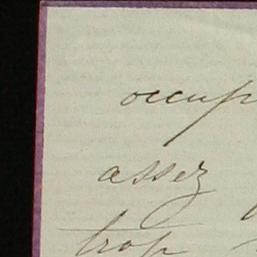 occup
assez
trop